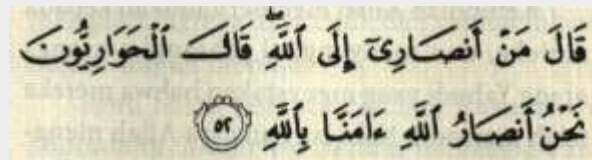 قَالَ مَنْ أَنصَارِىٓ إِلَى ٱللَّهِۖ قَالَ ٱلْحَوَارِيُّونَ
نَحْنُ أَنصَارُ ٱللَّهِ ءَامَنَّا بِٱللَّهِ ٥٢